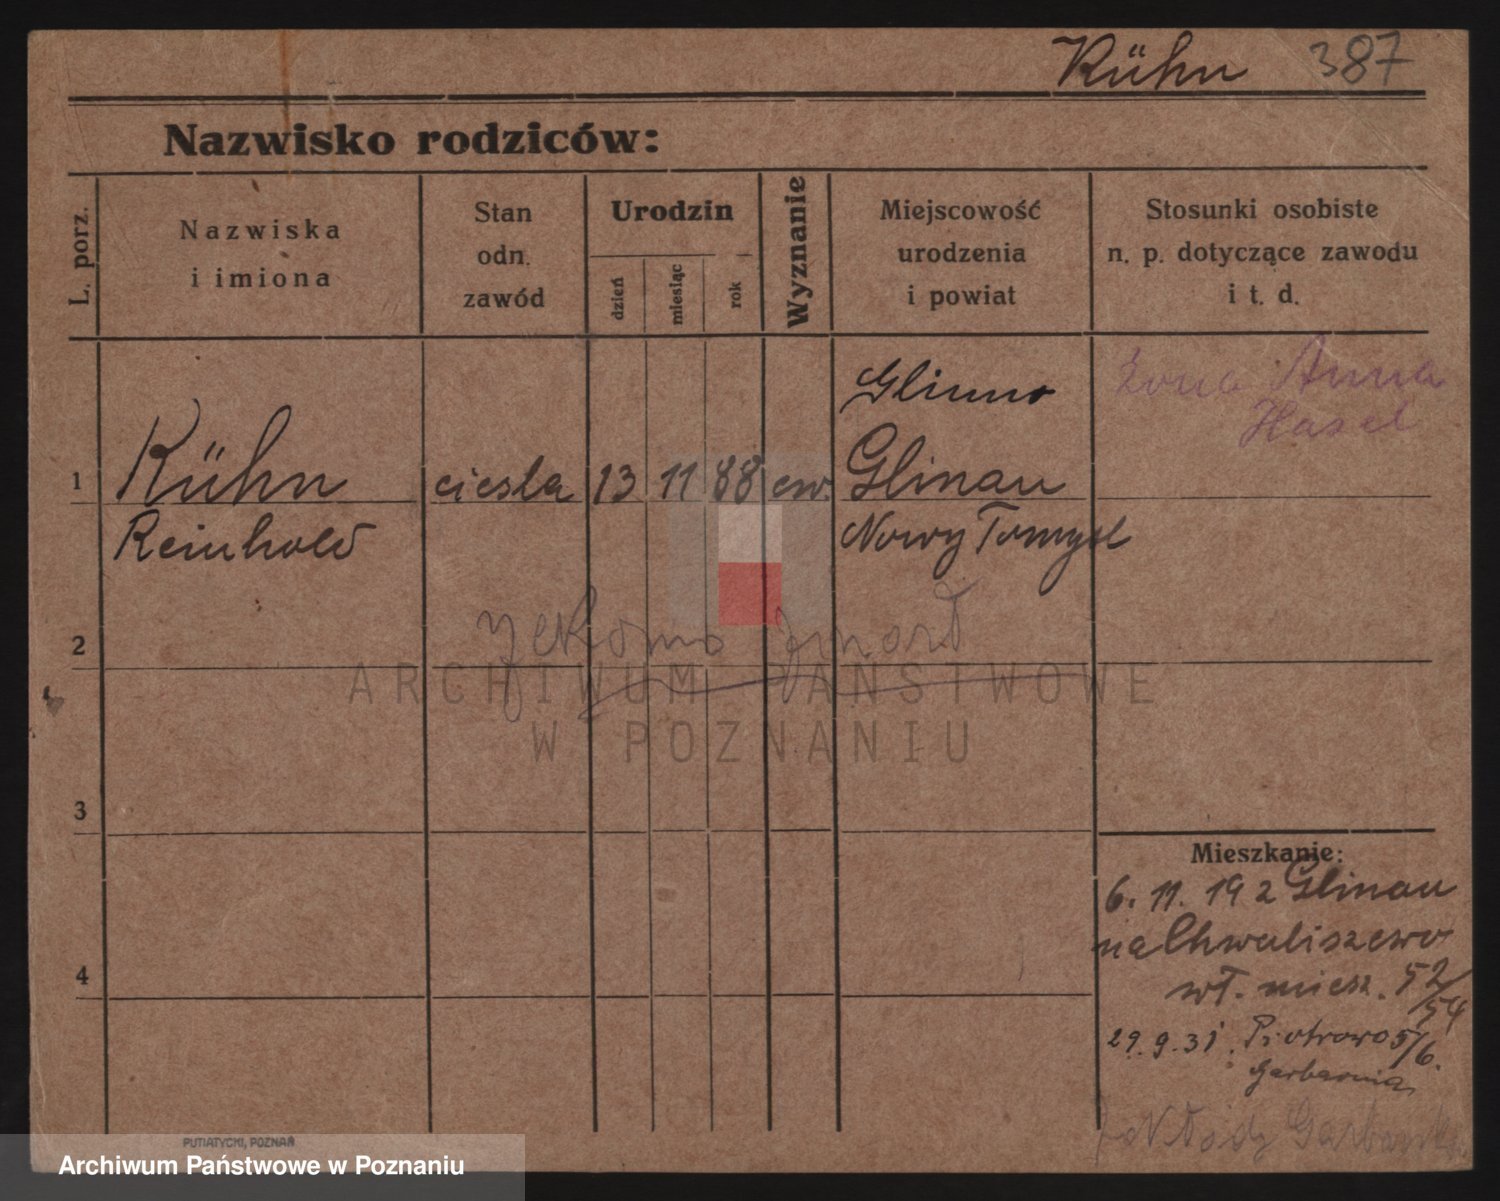 Kühn 387
Nazwisko rodziców:
L. porz.
Nazwiska
i imiona
Stan
odn.
zawód
Urodzin
dzień
miesiąc
rok
Wyznanie
Miejscowość
urodzenia
i powiat
Stosunki osobiste
n. p. dotyczące zawodu
i t. d.
Glinno
żona Anna
Hasel
1 Kühn cieśla 13 11 88 ew. Glinau
Reinhold Nowy Tomysl
2
rzekomo zmarł
ARCHIWUM PAŃSTWOWE
W POZNANIU
3
Mieszkanie:
6. 11. 192 Glinau
na Chwaliszewo
wł. miesz. 52/54
4
29. 9. 31. Piotrowo 5/6.
Garbarnia
PUTIATYCKI, POZNAŃ
Archiwum Państwowe w Poznaniu